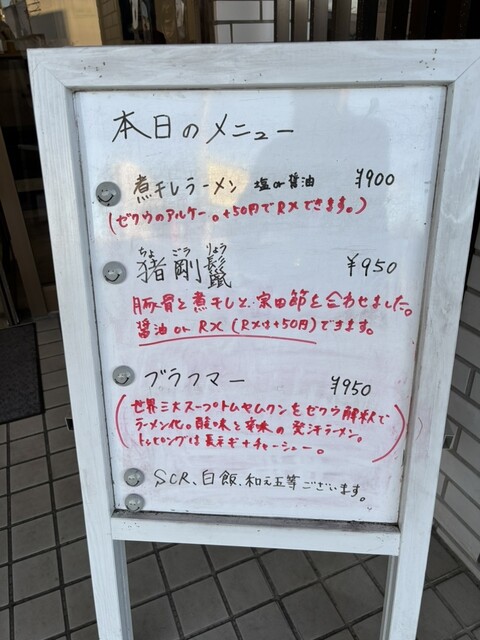 本日のメニュー
煮干しラーメン 塩or醤油 ¥900
(ゼクウのアルケー。+50円でRXできます。)
ちょ ごう りょう
猪剛鬣 ¥950
豚骨と煮干しと、宗田節を合わせました。
醤油 or RX (RXは+50円)できます。
ブラフマー ¥950
(世界三大スープトムヤムクンをゼクウ解釈で
ラーメン化。酸味と辛味の発汗ラーメン。
トッピングは長ネギ+チャーシュー。)
SCR、白飯、和え玉等ございます。